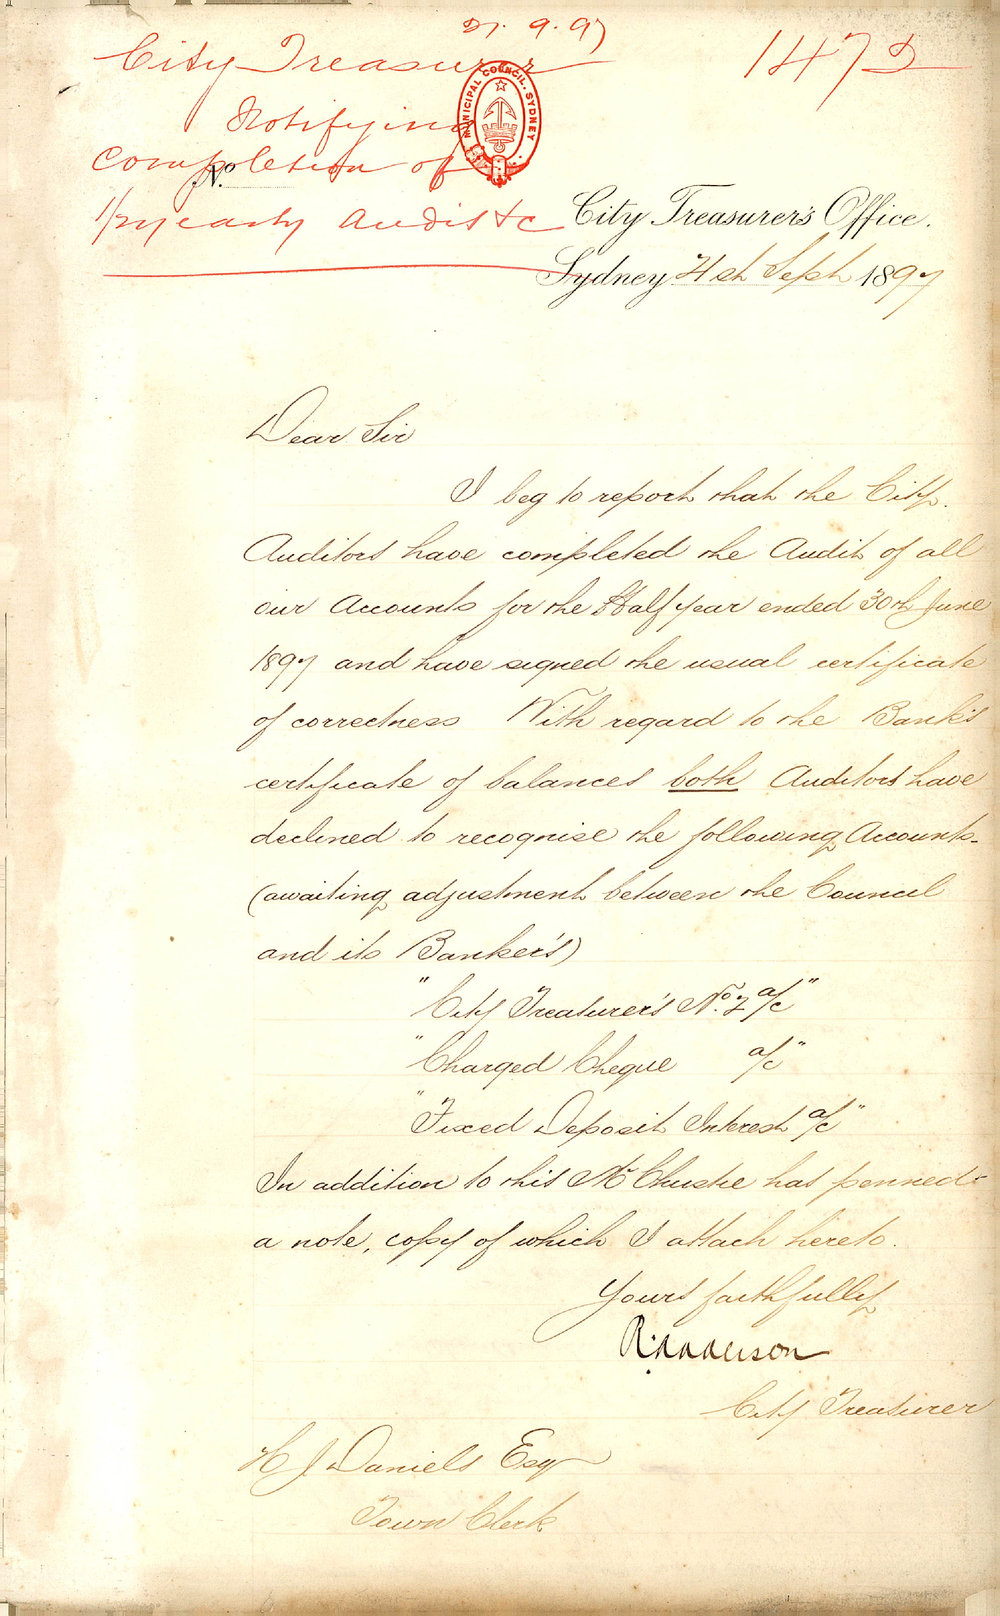 21.9.97
City Treasurer
1472
Notifying
completion of
1/2 yearly Audit &c
MUNICIPAL COUNCIL. SYDNEY
No
City Treasurer's Office.
Sydney 21st Sept 1897
Dear Sir
I beg to report that the City
Auditors have completed the Audit of all
our Accounts for the Half year ended 30th June
1897 and have signed the usual certificate
of correctness With regard to the Bank's
certificate of balances both Auditors have
declined to recognise the following Accounts-
(awaiting adjustment between the Council
and its Banker's)
"City Treasurer's No. 2 a/c"
"Charged Cheque a/c"
"Fixed Deposit Interest a/c"
In addition to this Mr has penned
a note, copy of which I attach hereto.
Yours faithfully
City Treasurer
H J Daniels Esq
Town Clerk